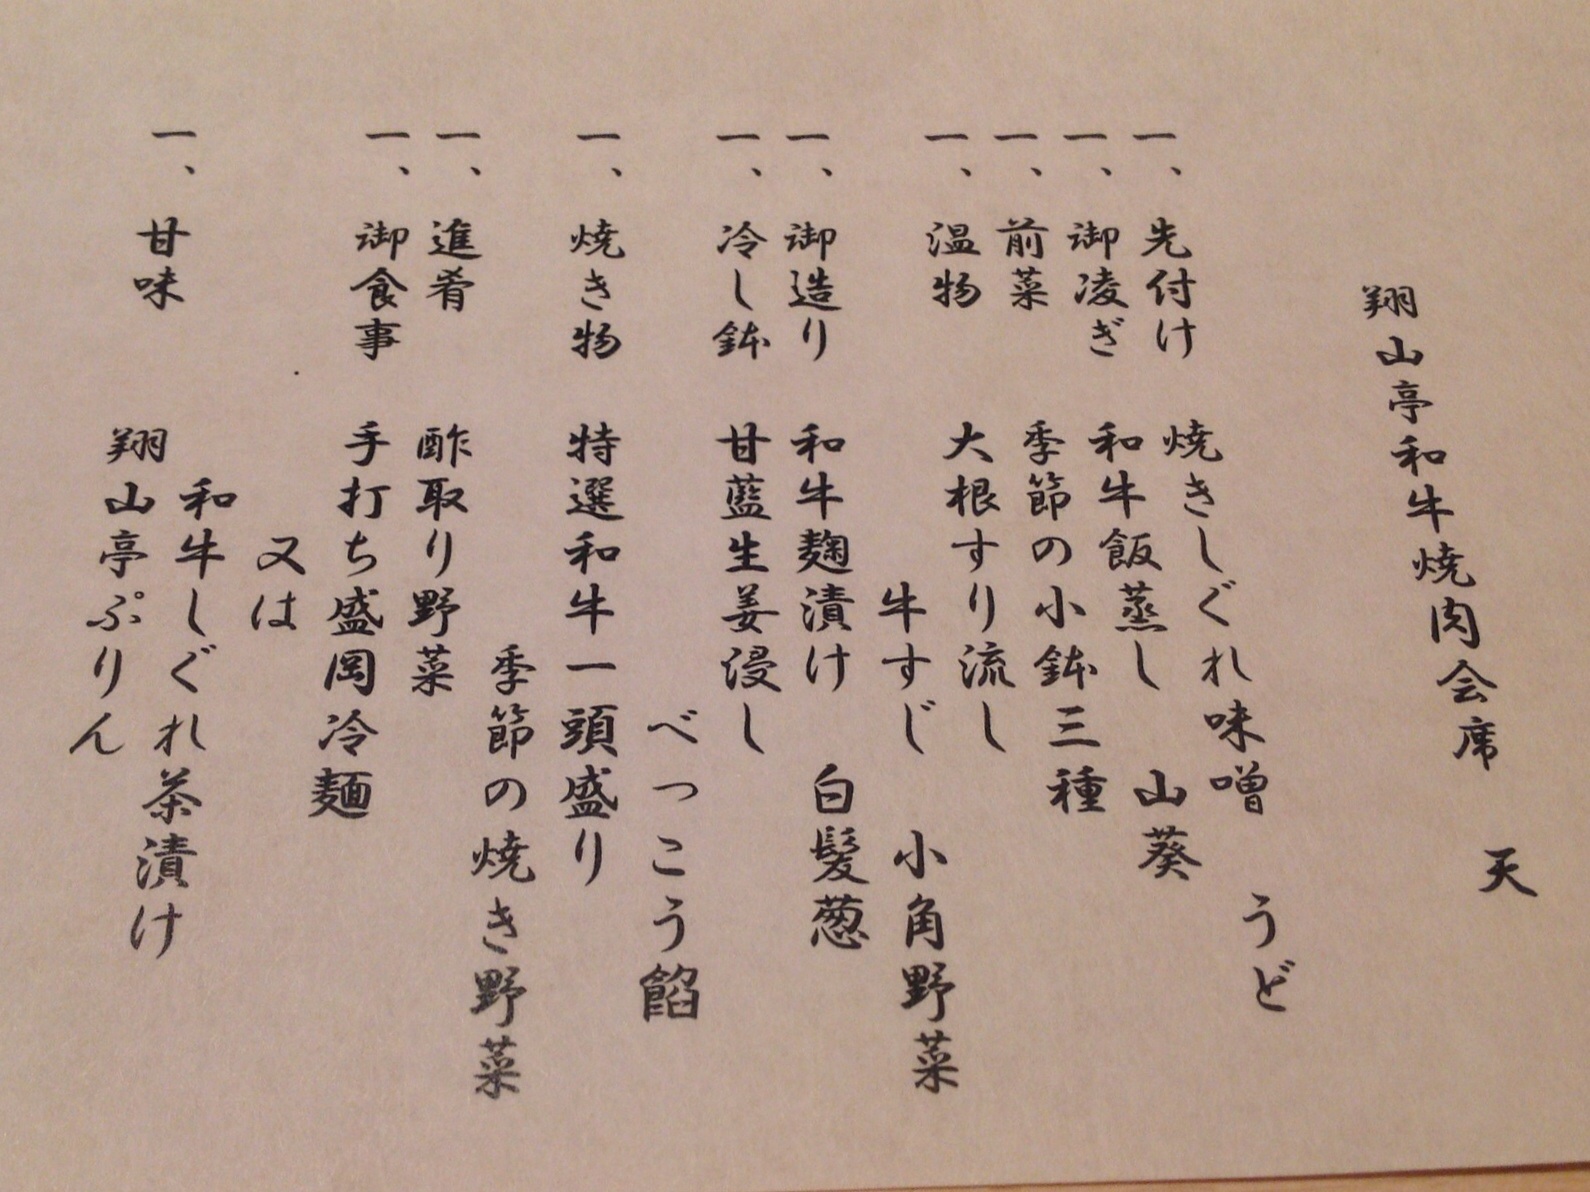 翔山亭和牛焼肉会席 天
一、先付け 焼きしぐれ味噌 うど
一、御凌ぎ 和牛飯蒸し 山葵
一、前菜 季節の小鉢三種
一、温物 大根すり流し
牛すじ 小角野菜
一、御造り 和牛麹漬け 白髪葱
一、冷し鉢 甘藍生姜浸し
べっこう餡
一、焼き物 特選和牛一頭盛り
季節の焼き野菜
一、進肴 酢取り野菜
一、御食事 手打ち盛岡冷麺
又は
和牛しぐれ茶漬け
一、甘味 翔山亭ぷりん